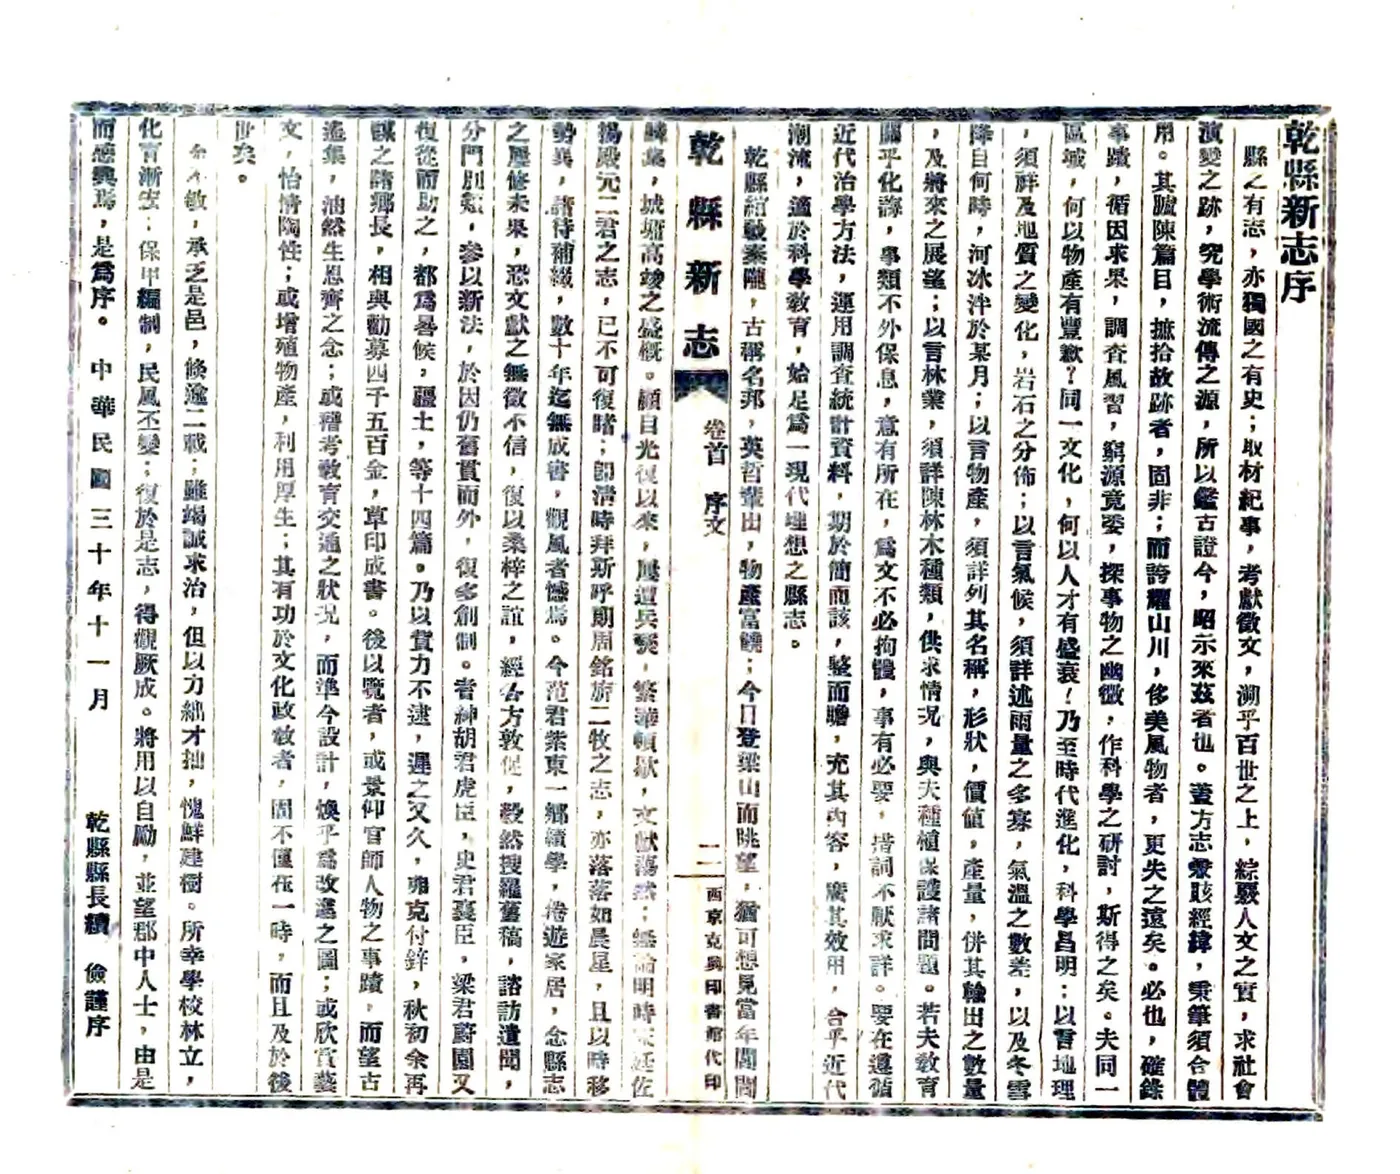 乾縣新志序
縣之有志，亦獨國之有史；取材紀事，考獻徵文，溯乎百世之上，綜覈人文之實，求社會
演變之跡，究學術流傳之源，所以鑑古證今，昭示來茲者也。蓋方志兼賅經緯，秉筆須合體
用。其臚陳篇目，摭拾故跡者，固非；而誇耀山川，侈美風物者，更失之遠矣。必也，確錄
事蹟，循因求果，調查風習，窮源竟委，探事物之幽微，作科學之研討，斯得之矣。夫同一
區域，何以物產有豐歉？同一文化，何以人才有盛衰！乃至時代進化，科學昌明；以言地理
，須詳及地質之變化，岩石之分佈；以言氣候，須詳述雨量之多寡，氣溫之數差，以及冬雪
降自何時，河冰泮於某月；以言物產，須詳列其名稱，形狀，價值，產量，併其輸出之數量
，及將來之展望；以言林業，須詳陳林木種類，供求情況，與夫種植保護諸問題。若夫教育
關乎化誨，事類不外保息，意有所在，為文不必拘體，事有必要，措詞不厭求詳。要在遵循
近代治學方法，運用調查統計資料，期於簡而該，整而贍，充其內容，廣其效用，合乎近代
潮流，適於科學教育，始足為一現代理想之縣志。
乾縣綰轂秦隴，古稱名邦，英哲輩出，物產富饒；今日登梁山而眺望，猶可想見當年閭閻
乾縣新志
卷首　序文
二
西京克興印書館代印
麟集，城墉高竣之盛概。顧自光復以來，屢遭兵燹，繁華頓歇，文獻蕩然；無論明時宋廷佐
楊殿元二君之志，已不可復睹；即清時拜斯呼朗周銘旂二牧之志，亦落落如晨星，且以時移
勢異，諸待補綴，數十年迄無成書，觀風者憾焉。今范君紫東一鄉績學，倦遊家居，念縣志
之歷修未果，恐文獻之無徵不信，復以桑梓之誼，經各方敦促，毅然搜羅舊稿，諮訪遺聞，
分門別類，參以新法，於因仍舊貫而外，復多創制。耆紳胡君虎臣，史君襄臣，梁君蔚園又
復從而助之，都為晷候，疆土，等十四篇。乃以貲力不逮，遲之又久，弗克付鋅，秋初余再
謀之諸鄉長，相與勸募四千五百金，草印成書。後以覽者，或景仰官師人物之事蹟，而望古
遙集，油然生思齊之念；或稽考教育交通之狀況，而準今設計，煥乎為改進之圖；或欣賞藝
文，怡情陶性；或增殖物產，利用厚生；其有功於文化政教者，固不僅在一時，而且及於後
世矣。
余不敏，承乏是邑，倏逾二載；雖竭誠求治，但以力絀才拙，愧鮮建樹。所幸學校林立，
化育漸宏；保甲編制，民風丕變；復於是志，得觀厥成。將用以自勵，並望郡中人士，由是
而感興焉，是為序。　中華民國三十年十一月　　乾縣縣長續　儉謹序